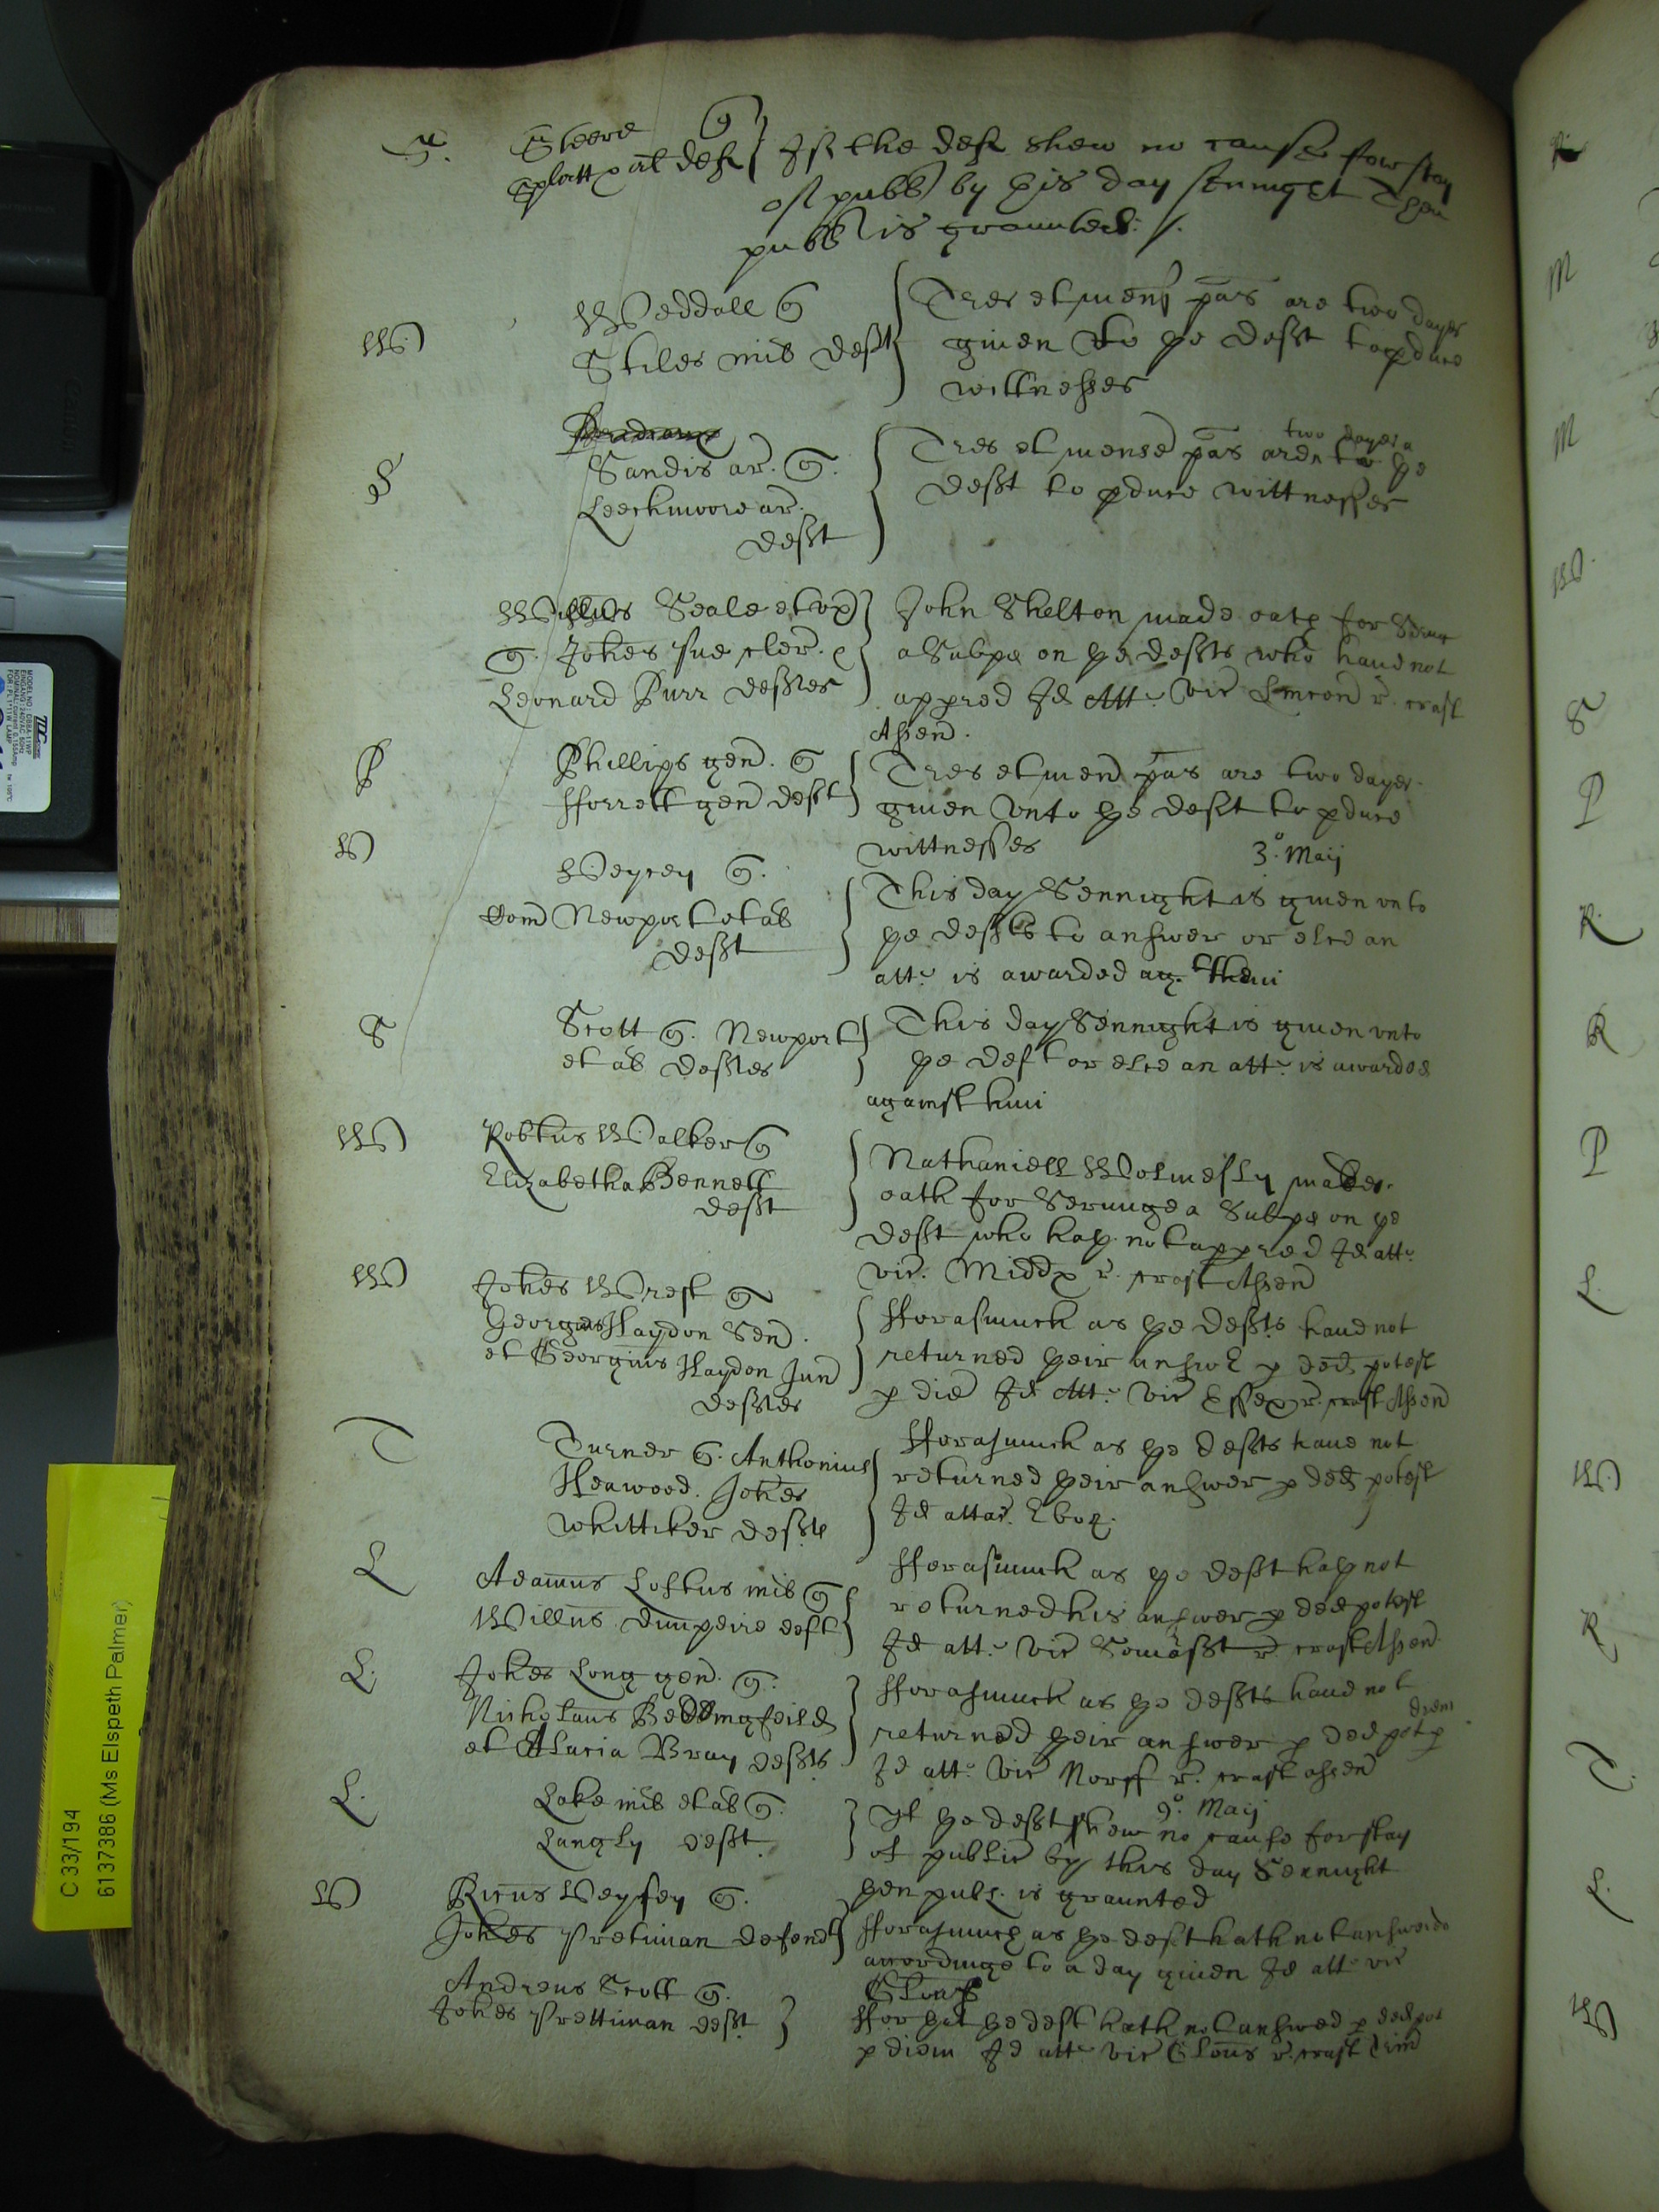 S.
Steere q
platt et al deft
If the deft shew no cause for stay
of publ by this day sennight then
publ is graunted:
W
Weddall q
Stiles mil deft
Tres et mens pas are two dayes
given to ye deft to pduce
wittnesses
S
Sandis ar. q.
Leechmoore ar.
deft
Tres et mense pas are two dayes to ye
deft to pduce wittnesses
Willus Seale et ux
q. Johes sue cler. e
Leonard Purr deftes
John Shelton made oath for
a Subpe on ye defts who haue not
appred Id Att. vic r. crast
Ascen.
P
Phillips gen. q
fforrett gen deft
Tres et men pas are two dayes
giuen vnto ye deft to pduce
wittnesses
3.o Maij
W
Weysey q.
Newport et al
deft
This day Sennight is giuen vnto
ye defts to answer or else an
att. is awarded ag.t them
S
Scott q. Newport
et al deftes
This day Sennight is giuen vnto
ye deft or else an att. is awarded
against him
W
Robtus Walker q
Elizabetha Bennett
deft
Nathaniell Wolmesly makes
oath for Seruinge a Subpe on ye
deft who hath not appred Id att.
vic. Middx r. crast Ascen
W
Johes Wrest q
Georgius Haydon Sen.
et Georgius Haydon Jun
deftes
fforasmuch as ye defts haue not
returned their answer p ded potest
p die Id Att. vic Essex r. crast Ascen
T
Turner q. Anthonius
Heawood. Johes
Whittiker deft
fforasmuch as ye defts haue not
returned their answer p ded potest
Id attac. Ebor.
L
Adamus Loftus mil q
Willus deft
fforasmuch as ye deft hath not
returned his answer p ded potest
Id att. vic Somasst r crast Ascen
L.
Johes Long gen. q.
Nicholaus Beddingfeild
et Alicia Bray defts
fforasmuch as ye defts haue not
returned their answer p ded pot p diem
Id att. vic Norff r. crast ascen
9.o Maij
L.
Lake mil et al q.
Langly deft.
If ye deft shew no cause for stay
of public by this day Sennight
then publ. is graunted
W
Ricus Weysey q.
Johes Pretiman defend
fforasmuch as ye deft hath not answerd
accordinge to a day giuen Id att vic
Glouc
Andreus Scott q.
Johes Prettiman deft
ffor that ye deft hath not answed p ded pot
p diem Id att vic Glouc r. crast Trin
M
M
W.
S
P
R.
R
P
L.
W
R
T.
L.
W
C 33/194
6137386 (Ms Elspeth Palmer)